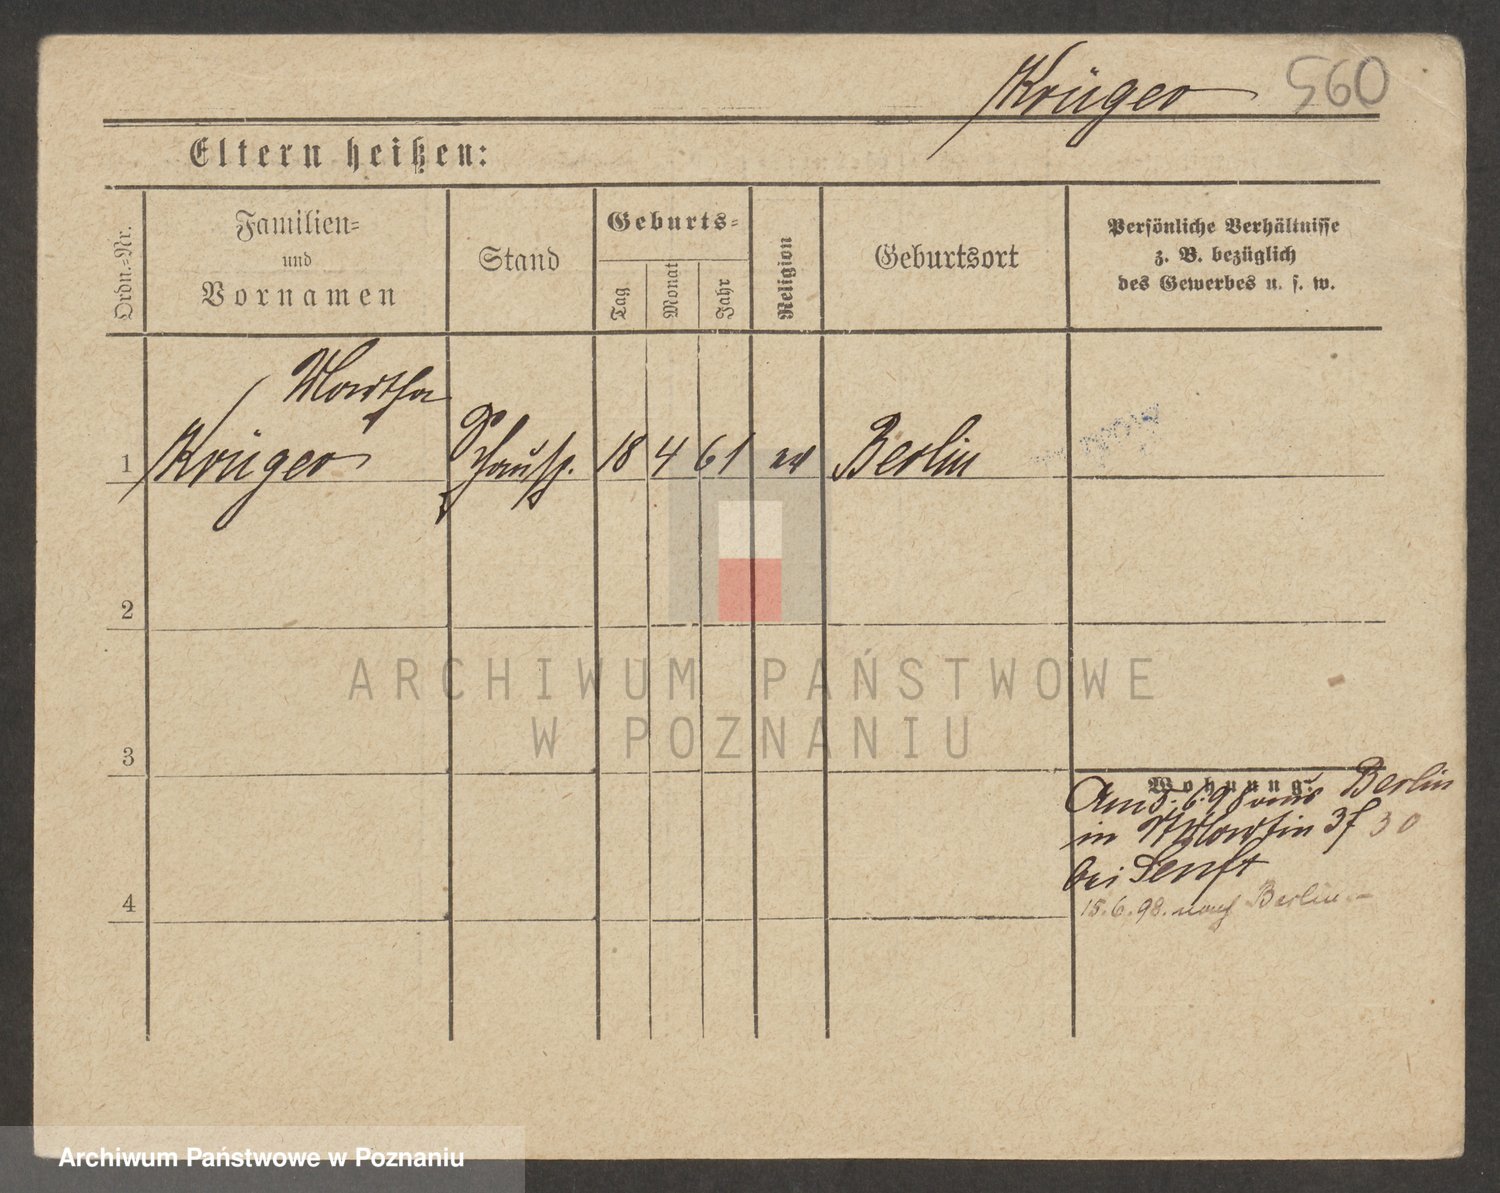 Krüger 560
Eltern heißen:
Ordn.-Nr.
Familien-
und
Vornamen
Stand
Geburts-
Tag
Monat
Jahr
Religion
Geburtsort
Persönliche Verhältnisse
z. B. bezüglich
des Gewerbes u. s. w.
Martha
1 Krüger Schausp. 18 4 61 ev Berlin
2
3
Wohnung:
Am 5.6.98 von Berlin
in Martin 37 30
bei Senft
4
15.6.98. nach Berlin.
ARCHIWUM PAŃSTWOWE
W POZNANIU
Archiwum Państwowe w Poznaniu